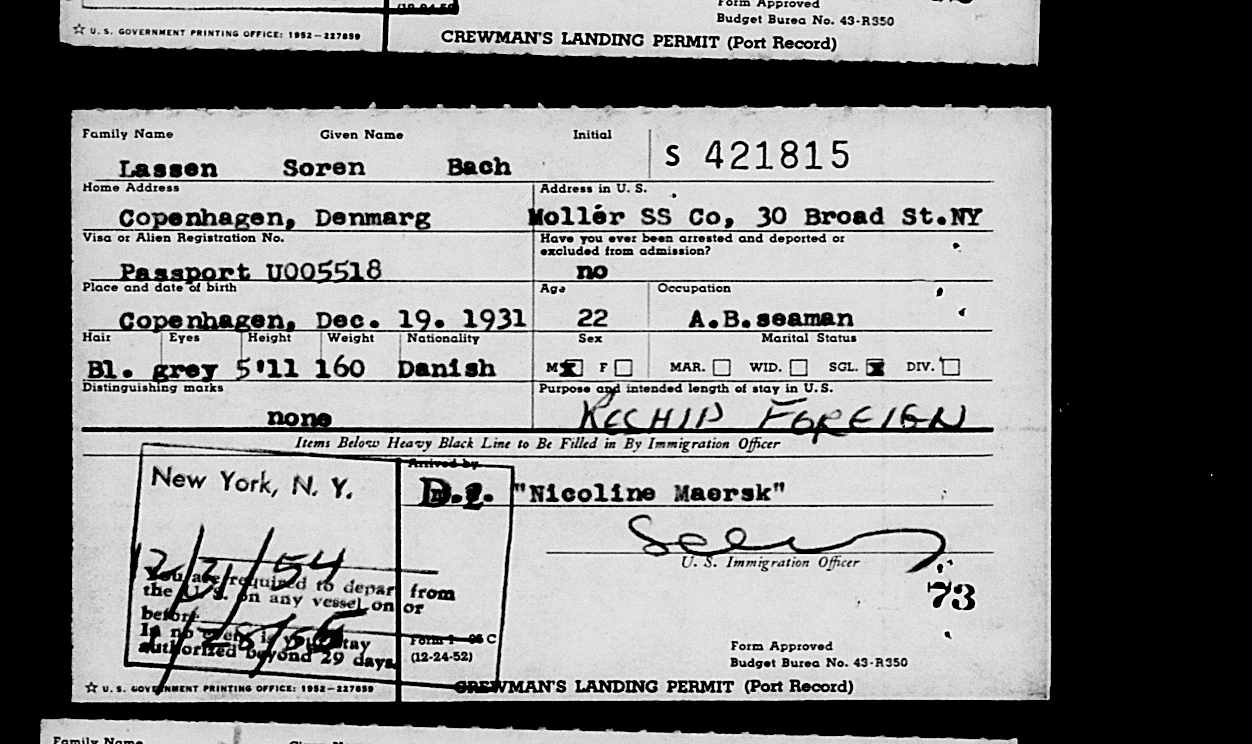 Form Approved
Budget Burea No. 43-R350
☆ U. S. GOVERNMENT PRINTING OFFICE: 1952—227859
CREWMAN'S LANDING PERMIT (Port Record)
Family Name Given Name Initial
S 421815
Lassen Soren Bach
Home Address Address in U. S.
Copenhagen, Denmarg Mollér SS Co, 30 Broad St.NY
Visa or Alien Registration No. Have you ever been arrested and deported or
excluded from admission?
Passport U005518 no
Place and date of birth Age Occupation
Copenhagen, Dec. 19. 1931 22 A.B.seaman
Hair Eyes Height Weight Nationality Sex Marital Status
Bl. grey 5'11 160 Danish M F MAR. WID. SGL. DIV.
Distinguishing marks Purpose and intended length of stay in U. S.
none RESHIP FOREIGN
Items Below Heavy Black Line to Be Filled in By Immigration Officer
Arrived by
New York, N. Y.
"Nicoline Maersk"
U. S. Immigration Officer
You are required to depart from
the U. S. on any vessel on or
before
In no event is your stay
authorized beyond 29 days.
73
(12-24-52)
Form Approved
Budget Burea No. 43-R350
☆ U. S. GOVERNMENT PRINTING OFFICE: 1952—227859
CREWMAN'S LANDING PERMIT (Port Record)
Family Name